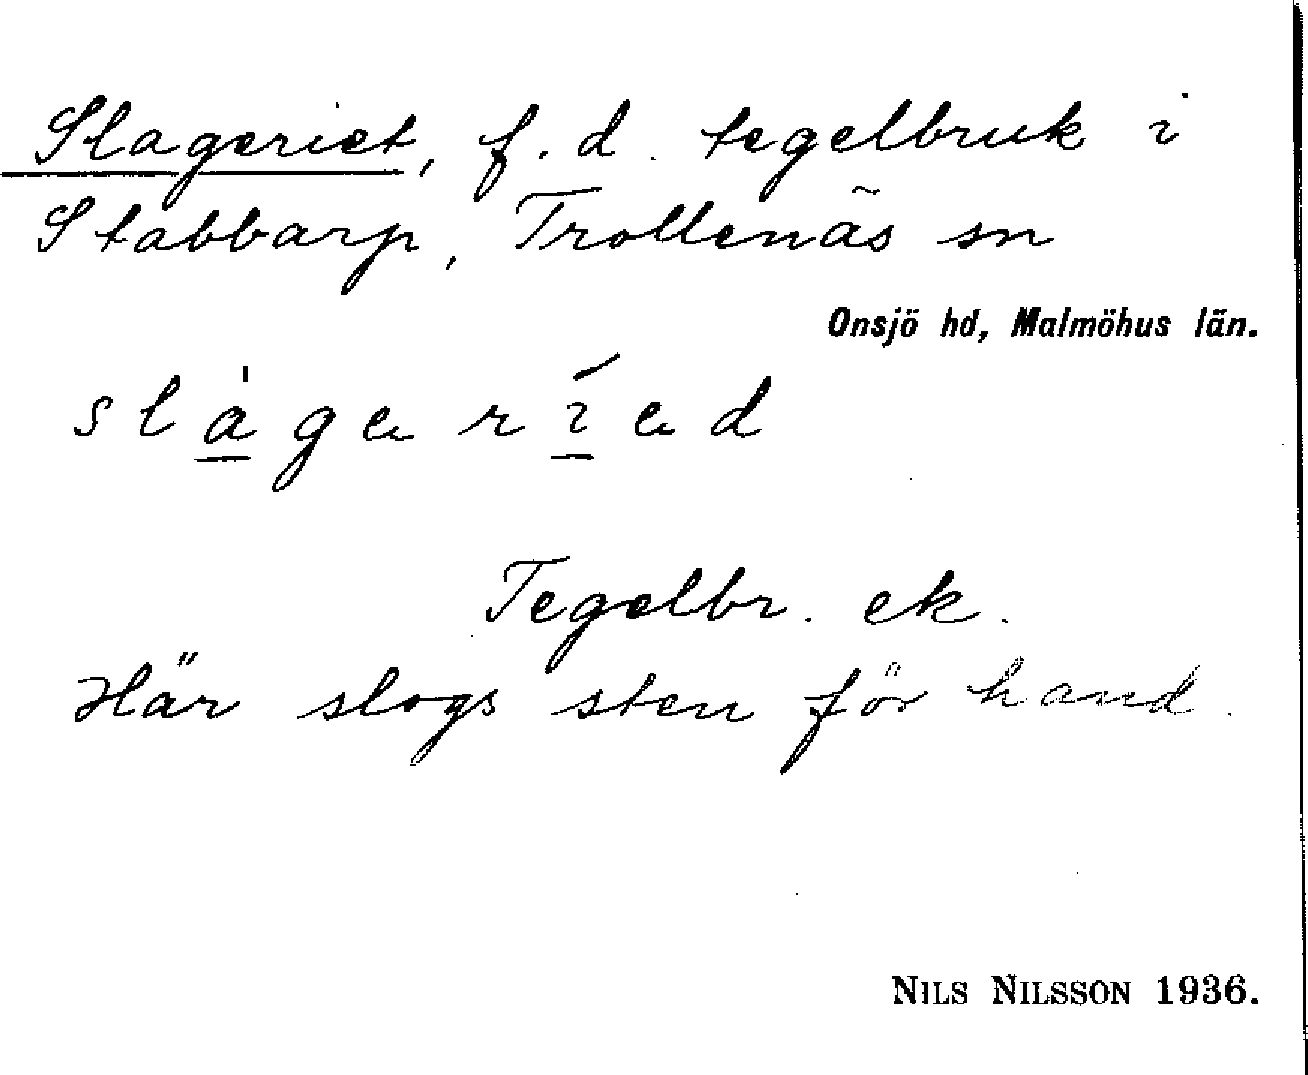 Slageriet, f. d. tegelbruk i
Stabbarp, Trollenäs sn
Onsjö hd, Malmöhus län.
slȧgeríed
Tegelbr. ek.
Här slogs sten för hand.
NILS NILSSON 1936.